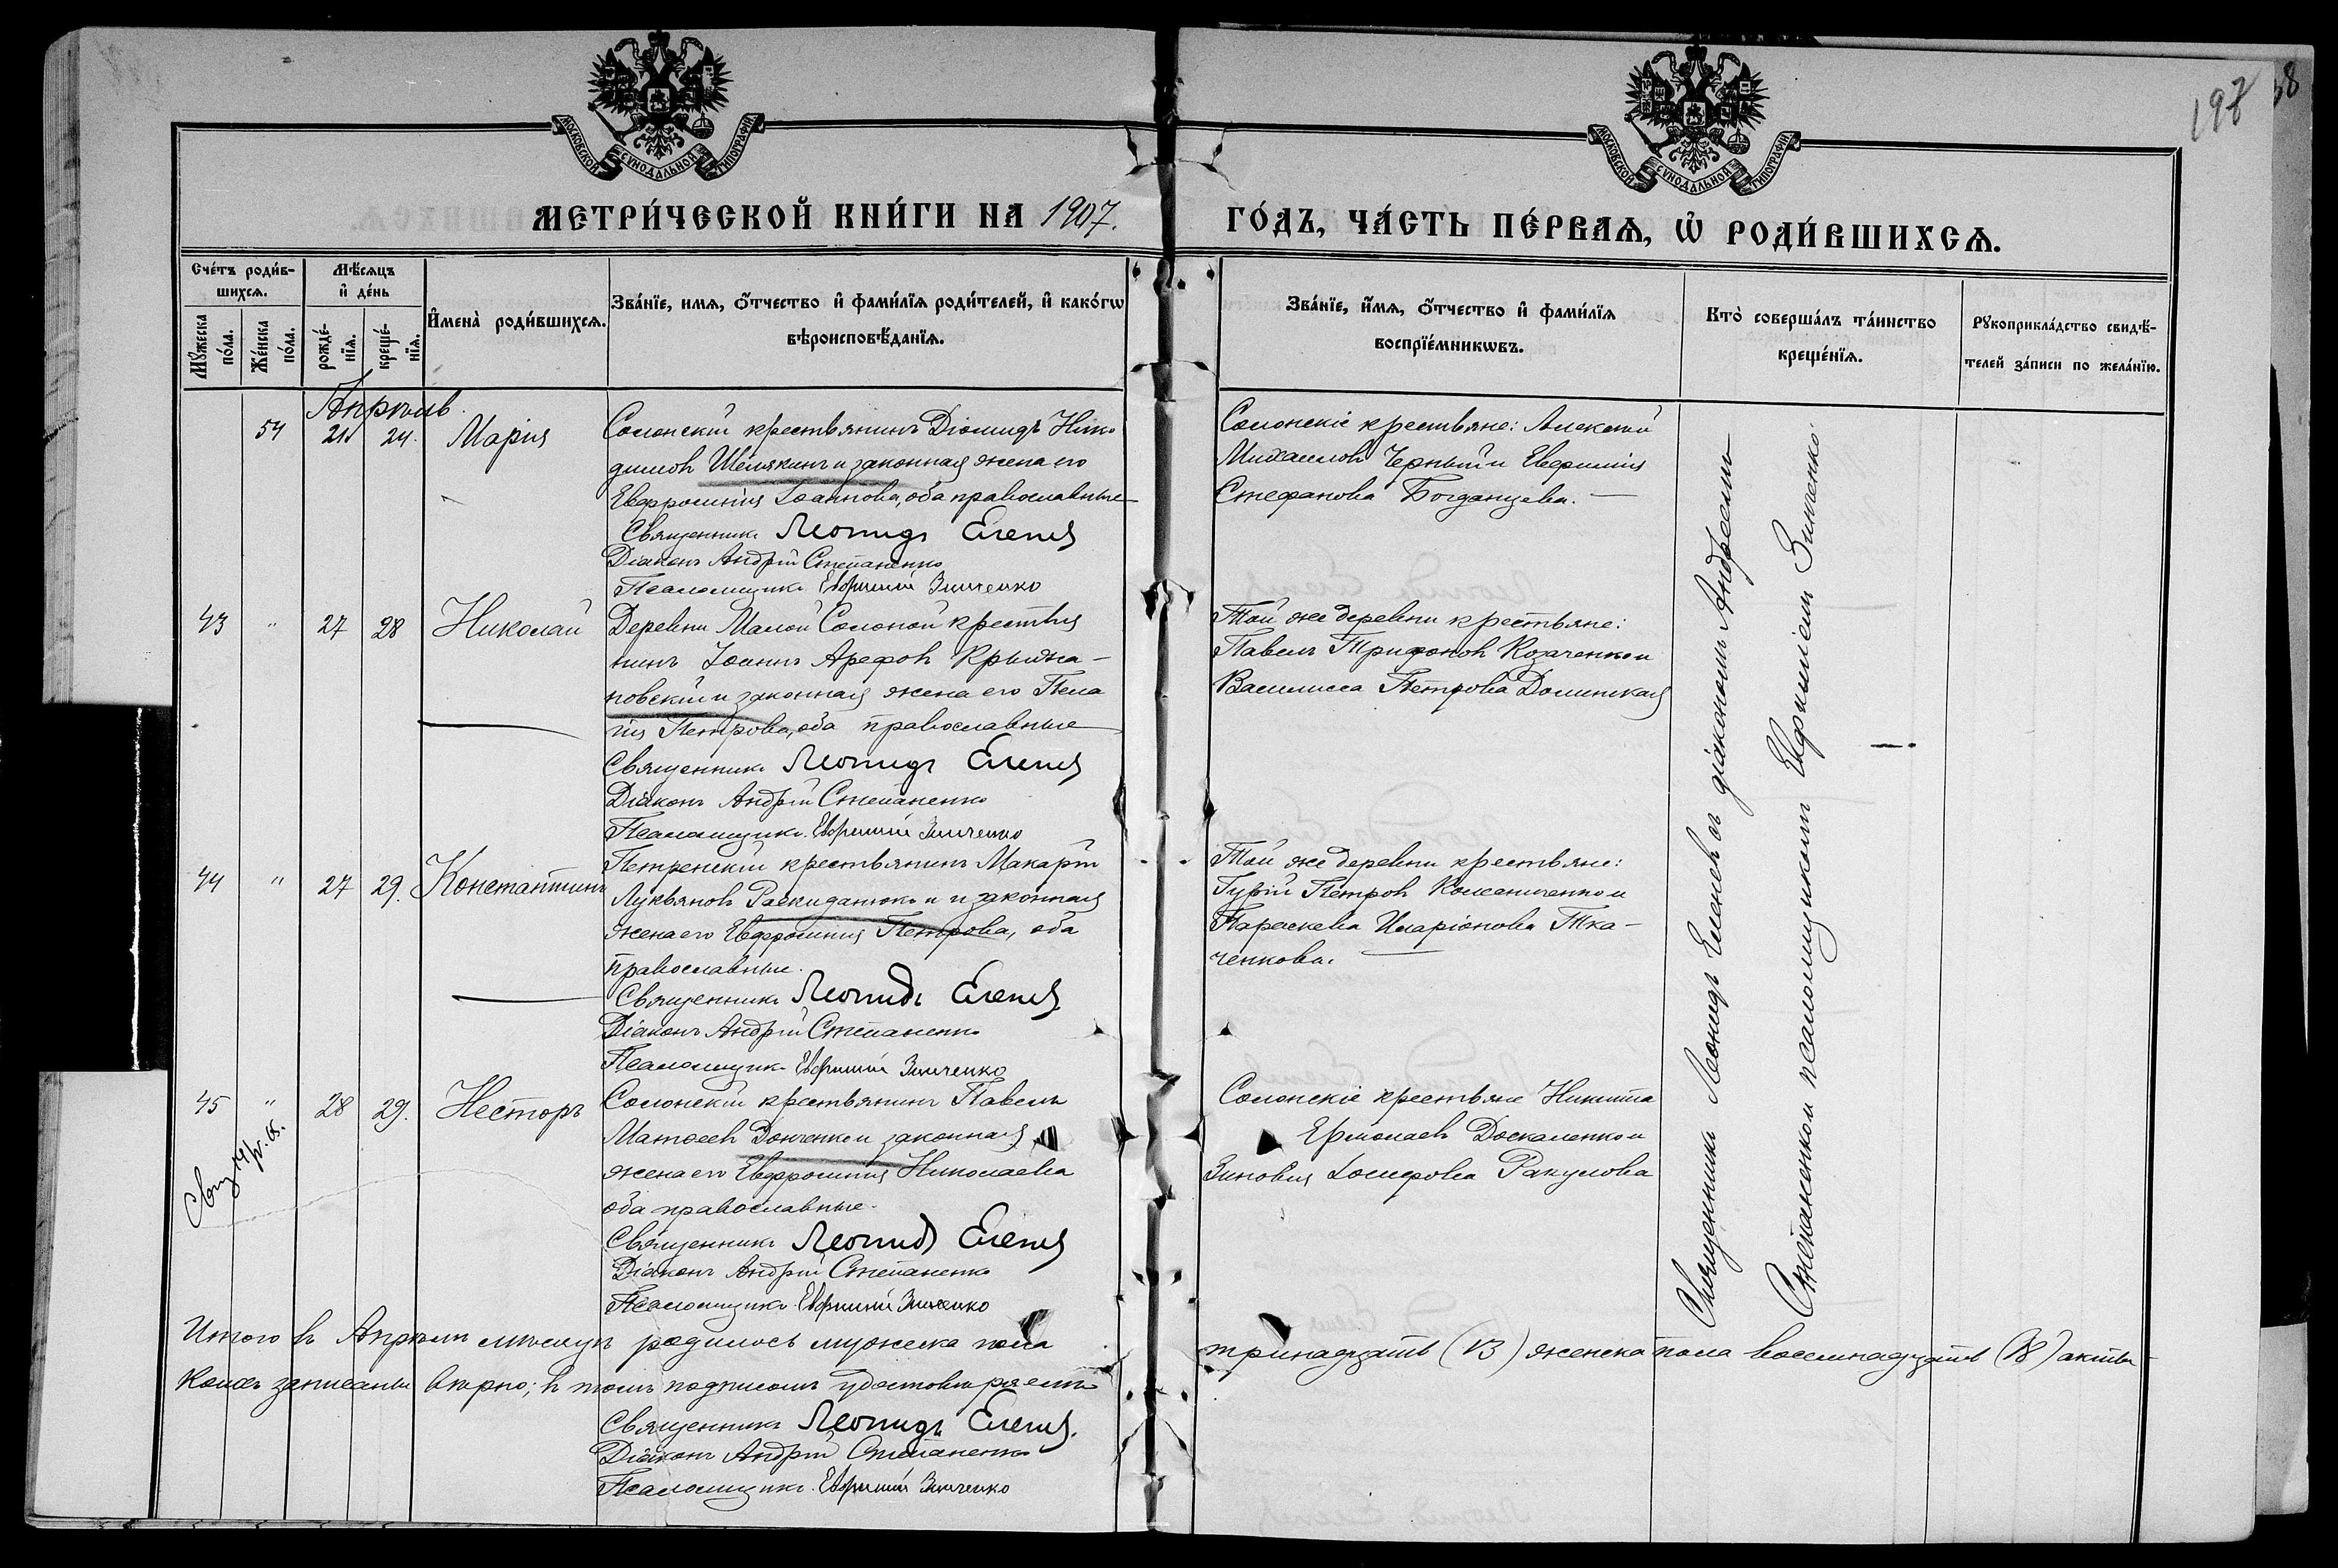 МОСКОВСКОЙ СѴНОДАЛЬНОЙ ТИПОГРАФІИ
МОСКОВСКОЙ СѴНОДАЛЬНОЙ ТИПОГРАФІИ
197
МЕТРИ́ЧЕСКОЙ КНИ́ГИ НА 1907.
ГО́ДЪ, ЧА́СТЬ ПЕ́РВАѦ, Ѡ҆ РОДИ́ВШИХСѦ.
Сче́тъ роди́в-
шихсѧ.
Мѣ́сѧцъ
и҆ де́нь
Мꙋ́жеска
по́ла.
Же́нска
по́ла.
рожде́-
нїѧ.
креще́-
нїѧ.
И҆мена̀ роди́вшихсѧ.
Зва́нїе, имѧ, ѻ҆́тчество и҆ фами́лїѧ роди́телей, и҆ како́гѡ
вѣроисповѣ́данїѧ.
Зва́нїе, и҆́мѧ, ѻ҆́тчество и҆ фами́лїѧ
воспрїе́мникѡвъ.
Кто̀ соверша́лъ та́инство
креще́нїѧ.
Рꙋкоприкла́дство свидѣ́-
телей за́писи по жела́нїю.
Апрѣль.
54 21 24. Марія
Солонскій крестьянинъ Діомидъ Нико
димовъ Шелякинъ и законная жена его
Евфросинія Іоаннова, оба православные
Священникъ Леонидъ Еленев
Діаконъ Андрей Степаненко
Псаломщикъ Евфимій Зинченко
Солонскіе крестьяне: Алексѣй
Михаиловъ Черный и Евфимія
Стефанова Богданцева.
43 " 27 28 Николай
Деревни Малой Солоной крестья
нинъ Іоаннъ Арефовъ Крыжа-
новскій и законная жена его Пела
гія Петрова, оба православные
Священникъ Леонидъ Еленев
Діаконъ Андрей Степаненко
Псаломщикъ Евфимій Зинченко
Той же деревни крестьяне:
Павелъ Трифоновъ Козаченко и
Василисса Петрова Долинская
44 " 27 29. Константинъ
Петренскій крестьянинъ Макарій
Лукьяновъ Раскиданюкъ и законная
жена его Евфросинія Петрова, оба
православные.
Священникъ Леонидъ Еленев
Діаконъ Андрей Степаненко
Псаломщикъ Евфимій Зинченко
Той же деревни крестьяне:
Гурій Петровъ Коломиченко и
Параскева Иларіонова Тка-
ченкова.
45 " 28 29. Несторъ
Солонскій крестьянинъ Павелъ
Матѳеевъ Донченко и законная
жена его Евфросинія Николаева
оба православные.
Священникъ Леонидъ Еленев
Діаконъ Андрей Степаненко
Псаломщикъ Евфимій Зинченко
Солонскіе крестьяне Никита
Ермолаевъ Доскаленко и
Зиновія Іосифова Ракулова
Священникъ Леонидъ Еленевъ съ діакономъ Андреемъ
Степаненкомъ и псаломщикомъ Евфиміемъ Зинченко
Итого въ Апрѣлѣ мѣсяцѣ родилось мужеска пола тринадцать (13) женска пола восемнадцать (18) акты
коихъ записаны вѣрно; въ томъ подписомъ удостовѣряемъ
Священникъ Леонидъ Еленев.
Діаконъ Андрей Степаненко
Псаломщикъ Евфимій Зинченко